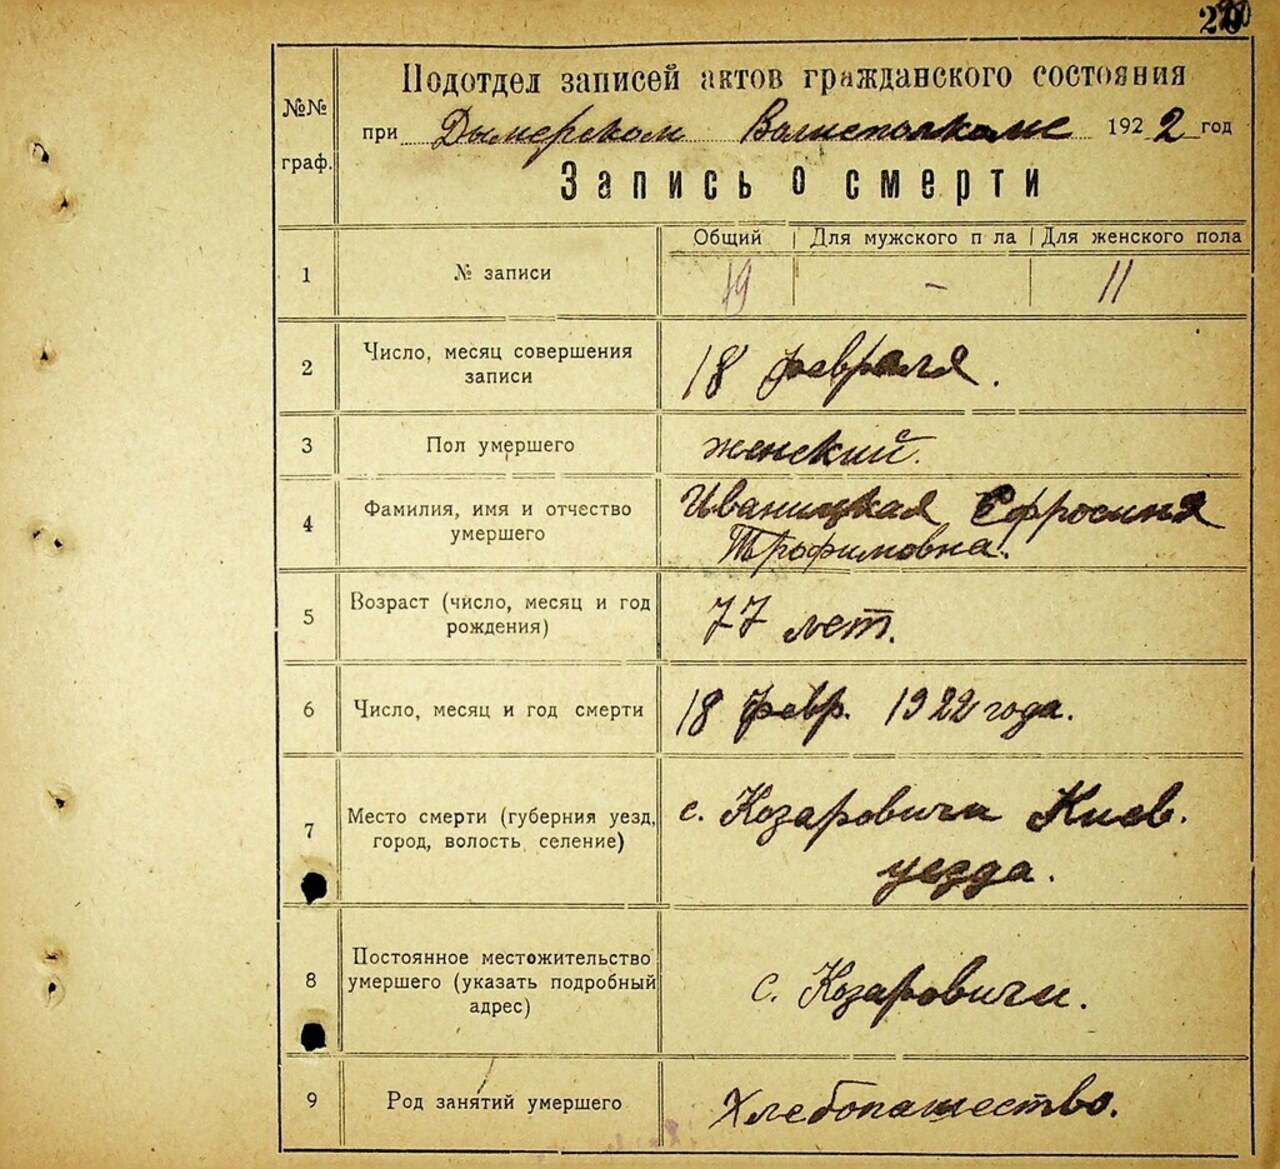 Подотдел записей актов гражданского состояния
№№ граф.
при Дымерском Волисполкоме 1922 год
Запись о смерти
Общий Для мужского п ла Для женского пола
1 № записи 19 - 11
2 Число, месяц совершения
записи
18 февраля.
3 Пол умершего женский.
4 Фамилия, имя и отчество
умершего
Иваницкая Ефросиния
Трофимовна.
5 Возраст (число, месяц и год
рождения)
77 лет.
6 Число, месяц и год смерти 18 февр. 1922 года.
7 Место смерти (губерния уезд,
город, волость селение)
с. Козаровичи Киев.
уезда.
8 Постоянное местожительство
умершего (указать подробный
адрес)
с. Козаровичи.
9 Род занятий умершего Хлебопашество.